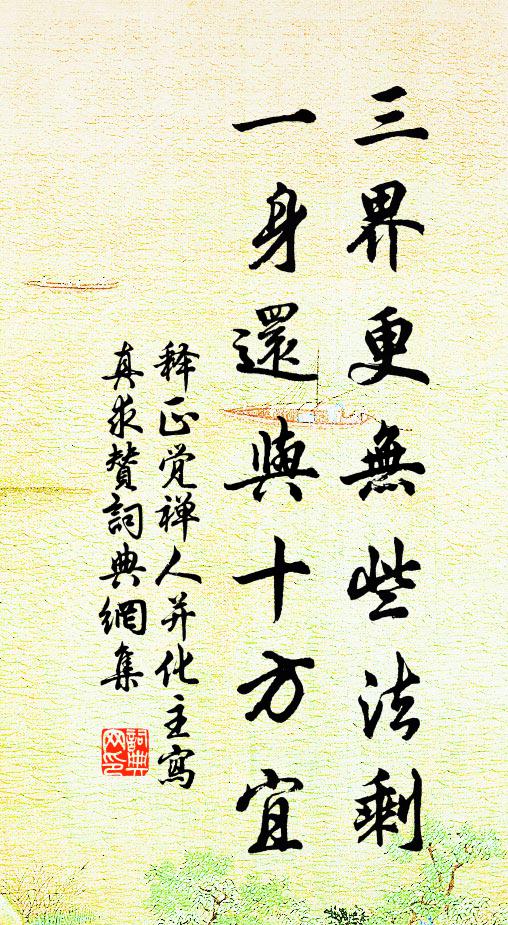 三界更無些法剩
一身還與十方宜
释正觉禅人并化主寫
真求贊詞典網集
詞典网印